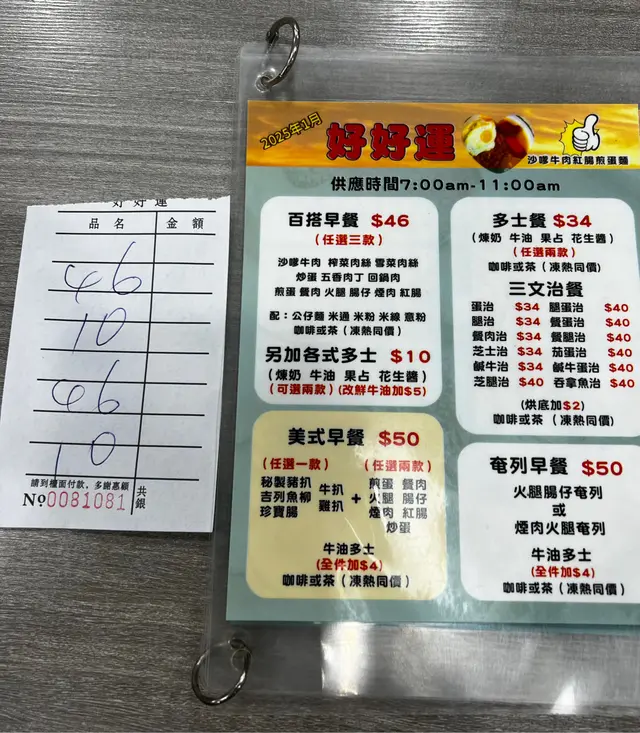 好好運
品名 金額
46
10
46
10
請到櫃面付款，多謝惠顧
共銀
Nº0081081
2025年1月
好好運
沙嗲牛肉紅腸煎蛋麵
供應時間7:00am-11:00am
百搭早餐 $46
(任選三款)
沙嗲牛肉 榨菜肉絲 雪菜肉絲
炒蛋 五香肉丁 回鍋肉
煎蛋 餐肉 火腿 腸仔 煙肉 紅腸
配：公仔麵 米通 米粉 米線 意粉
咖啡或茶（凍熱同價）
另加各式多士 $10
(煉奶 牛油 果占 花生醬)
(可選兩款)(改鮮牛油加$5)
多士餐 $34
(煉奶 牛油 果占 花生醬)
(任選兩款)
咖啡或茶（凍熱同價）
三文治餐
蛋治 $34 腿蛋治 $40
腿治 $34 餐蛋治 $40
餐肉治 $34 餐腿治 $40
芝士治 $34 茄蛋治 $40
鹹牛治 $40 鹹牛蛋治 $40
芝腿治 $40 吞拿魚治 $40
(烘底加$2)
咖啡或茶（凍熱同價）
美式早餐 $50
(任選一款) (任選兩款)
秘製豬扒 牛扒 煎蛋 餐肉
吉列魚柳 雞扒 + 火腿 腸仔
珍寶腸 煙肉 紅腸
炒蛋
牛油多士
(全件加$4)
咖啡或茶（凍熱同價）
奄列早餐 $50
火腿腸仔奄列
或
煙肉火腿奄列
牛油多士
(全件加$4)
咖啡或茶（凍熱同價）